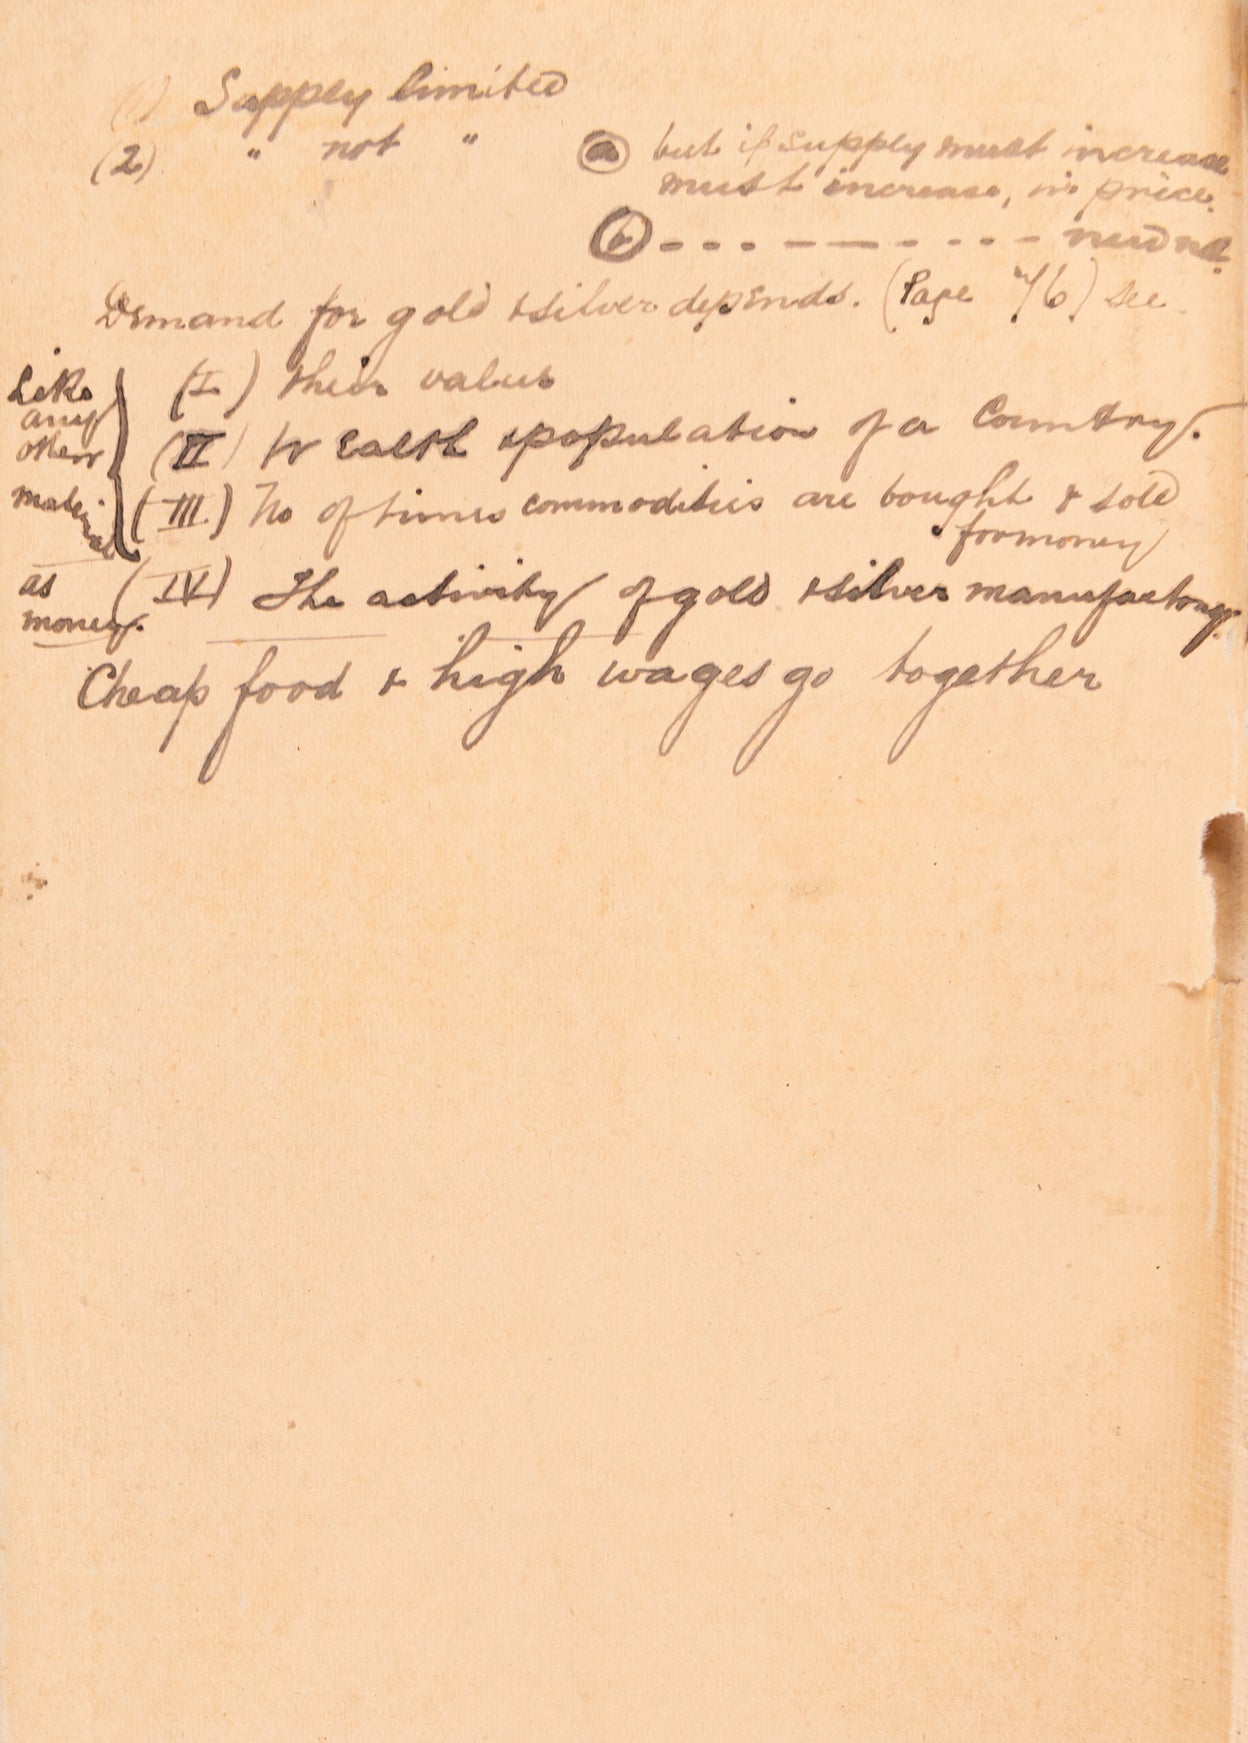 (1) Supply limited
(2) " not " (a) but if supply must increase
must increase, in price.
(b) - - - - — — - - - - need not.
Demand for gold & silver depends. (Page 76) see
Like any other material
(I) their value
(II) Wealth & population of a Country.
(III) No of times commodities are bought & sold
for money
as money.
(IV) The activity of gold & silver manufactory.
Cheap food & high wages go together